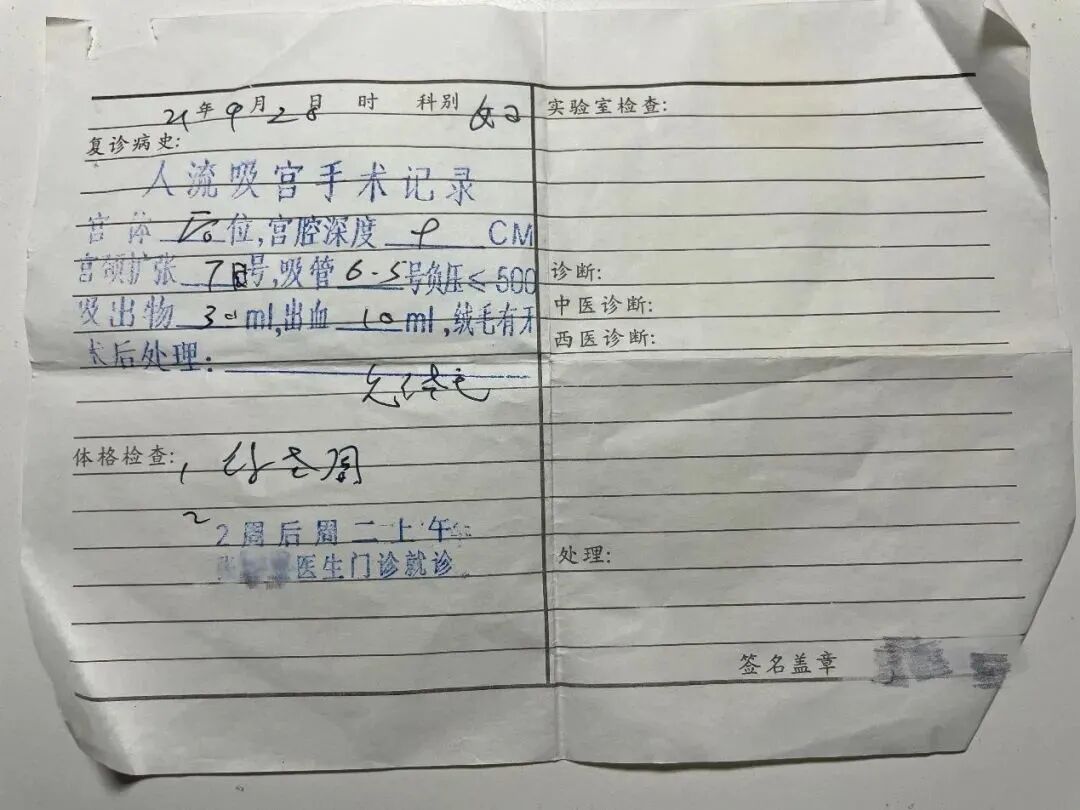 21年9月28日 时 科别 妇
复诊病史:
人流吸宫手术记录
宫体 后 位,宫腔深度 9 CM
宫颈扩张 7 号,吸管 6.5 号负压≤500
吸出物 30 ml,出血 10 ml,绒毛有无
术后处理:
体格检查: 1,
2 2周后周二上午
医生门诊就诊
实验室检查:
诊断:
中医诊断:
西医诊断:
处理:
签名盖章